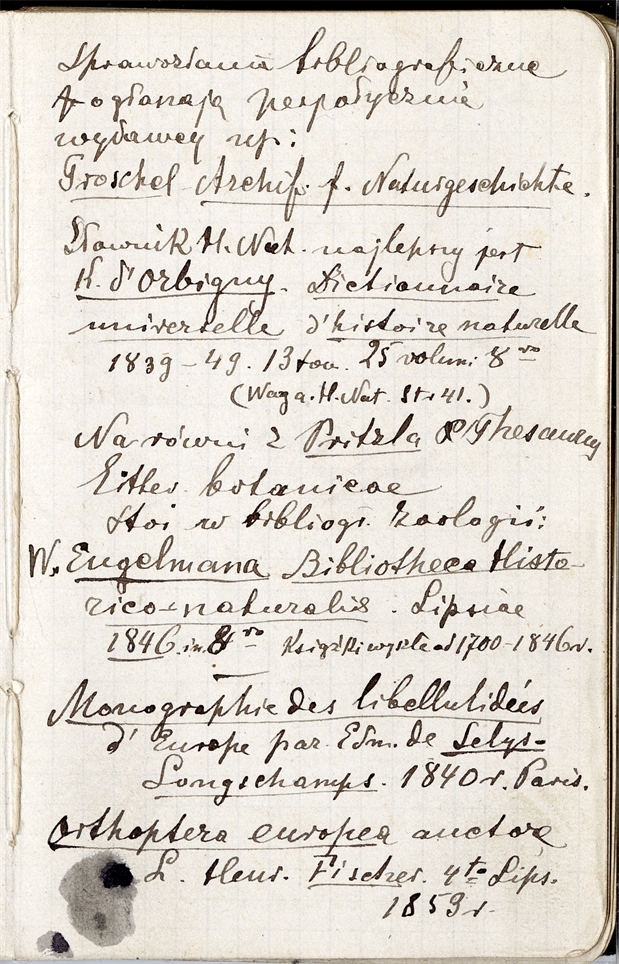 Sprawozdania bibliograficzne
ogłaszają peryodycznie
wydawcy np:
Troschel Archif. f. Naturgeschichte.
Słownik H. Nat. najlepszy jest
K. d'Orbigny. Dictionnaire
universelle d'histoire naturelle
1839-49. 13 tom. 25 volum. 8vo
(Waga. H. Nat. Str 41.)
Na równi z Pritzla Thesaurus
Litter. botanicae
stoi w bibliogr. Zoologii:
W. Engelmana Bibliotheca Histo-
rico-naturalis. Lipsiae
1846. in. 8vo Książki wyszłe od 1700-1846 r.
Monographie des libellulidées
d'Europe par Edm. de Selys-
Longschamps. 1840 r. Paris.
Orthoptera europea auctore
L. Henr. Fischer. 4to Lips.
1853 r.